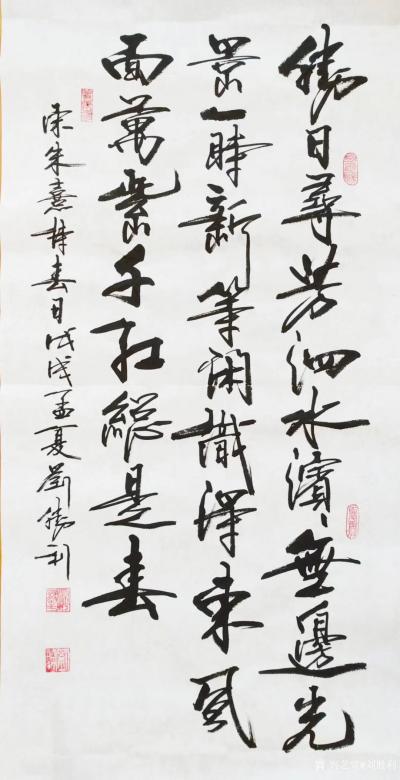 勝日尋芳泗水濱無邊光
景一時新等閑識得東風
面萬紫千紅總是春
宋朱熹詩春日戊戌孟夏劉勝利
兴艺堂@刘胜利